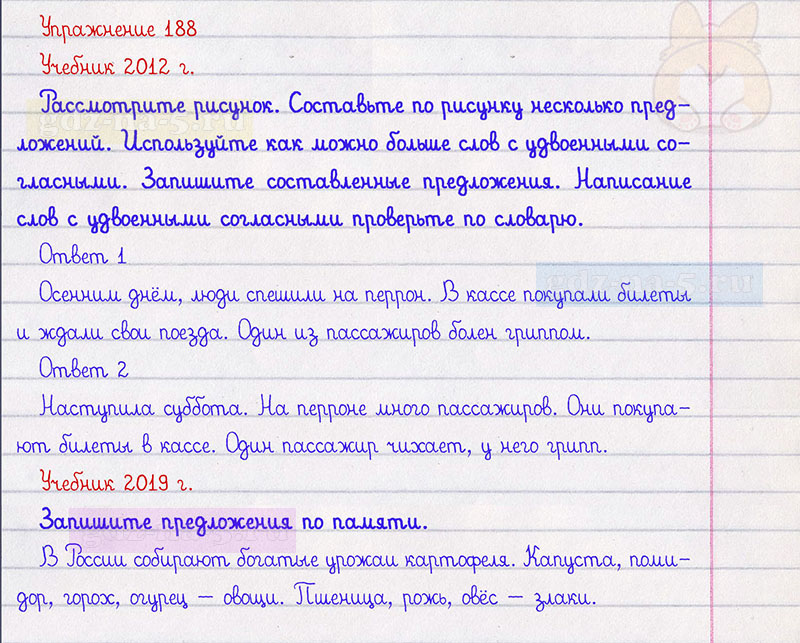 Упражнение 188
Учебник 2012 г.
Рассмотрите рисунок. Составьте по рисунку несколько пред-
ложений. Используйте как можно больше слов с удвоенными со-
гласными. Запишите составленные предложения. Написание
слов с удвоенными согласными проверьте по словарю.
Ответ 1
Осенним днём, люди спешили на перрон. В кассе покупали билеты
и ждали свои поезда. Один из пассажиров болен гриппом.
Ответ 2
Наступила суббота. На перроне много пассажиров. Они покупа-
ют билеты в кассе. Один пассажир чихает, у него грипп.
Учебник 2019 г.
Запишите предложения по памяти.
В России собирают богатые урожаи картофеля. Капуста, поми-
дор, горох, огурец – овощи. Пшеница, рожь, овёс – злаки.
gdz-na-5.ru
gdz-na-5.ru
gdz-na-5.ru